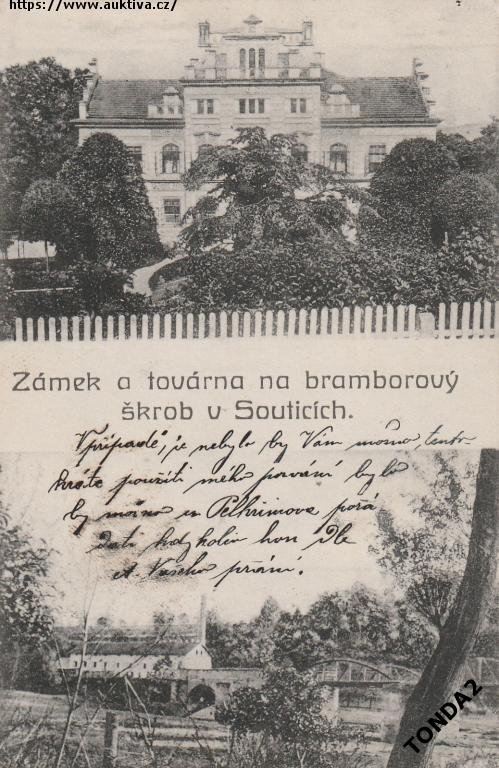 https://www.auktiva.cz/
Zámek a továrna na bramborový
škrob v Souticích.
V případě, že nebylo by Vám možno, tento
kráte použiti mého pozvání bylo
by možno u Pelhřimova pořá
dati kdy koliv hon Dle
ct. Vašeho přání.
TONDA2